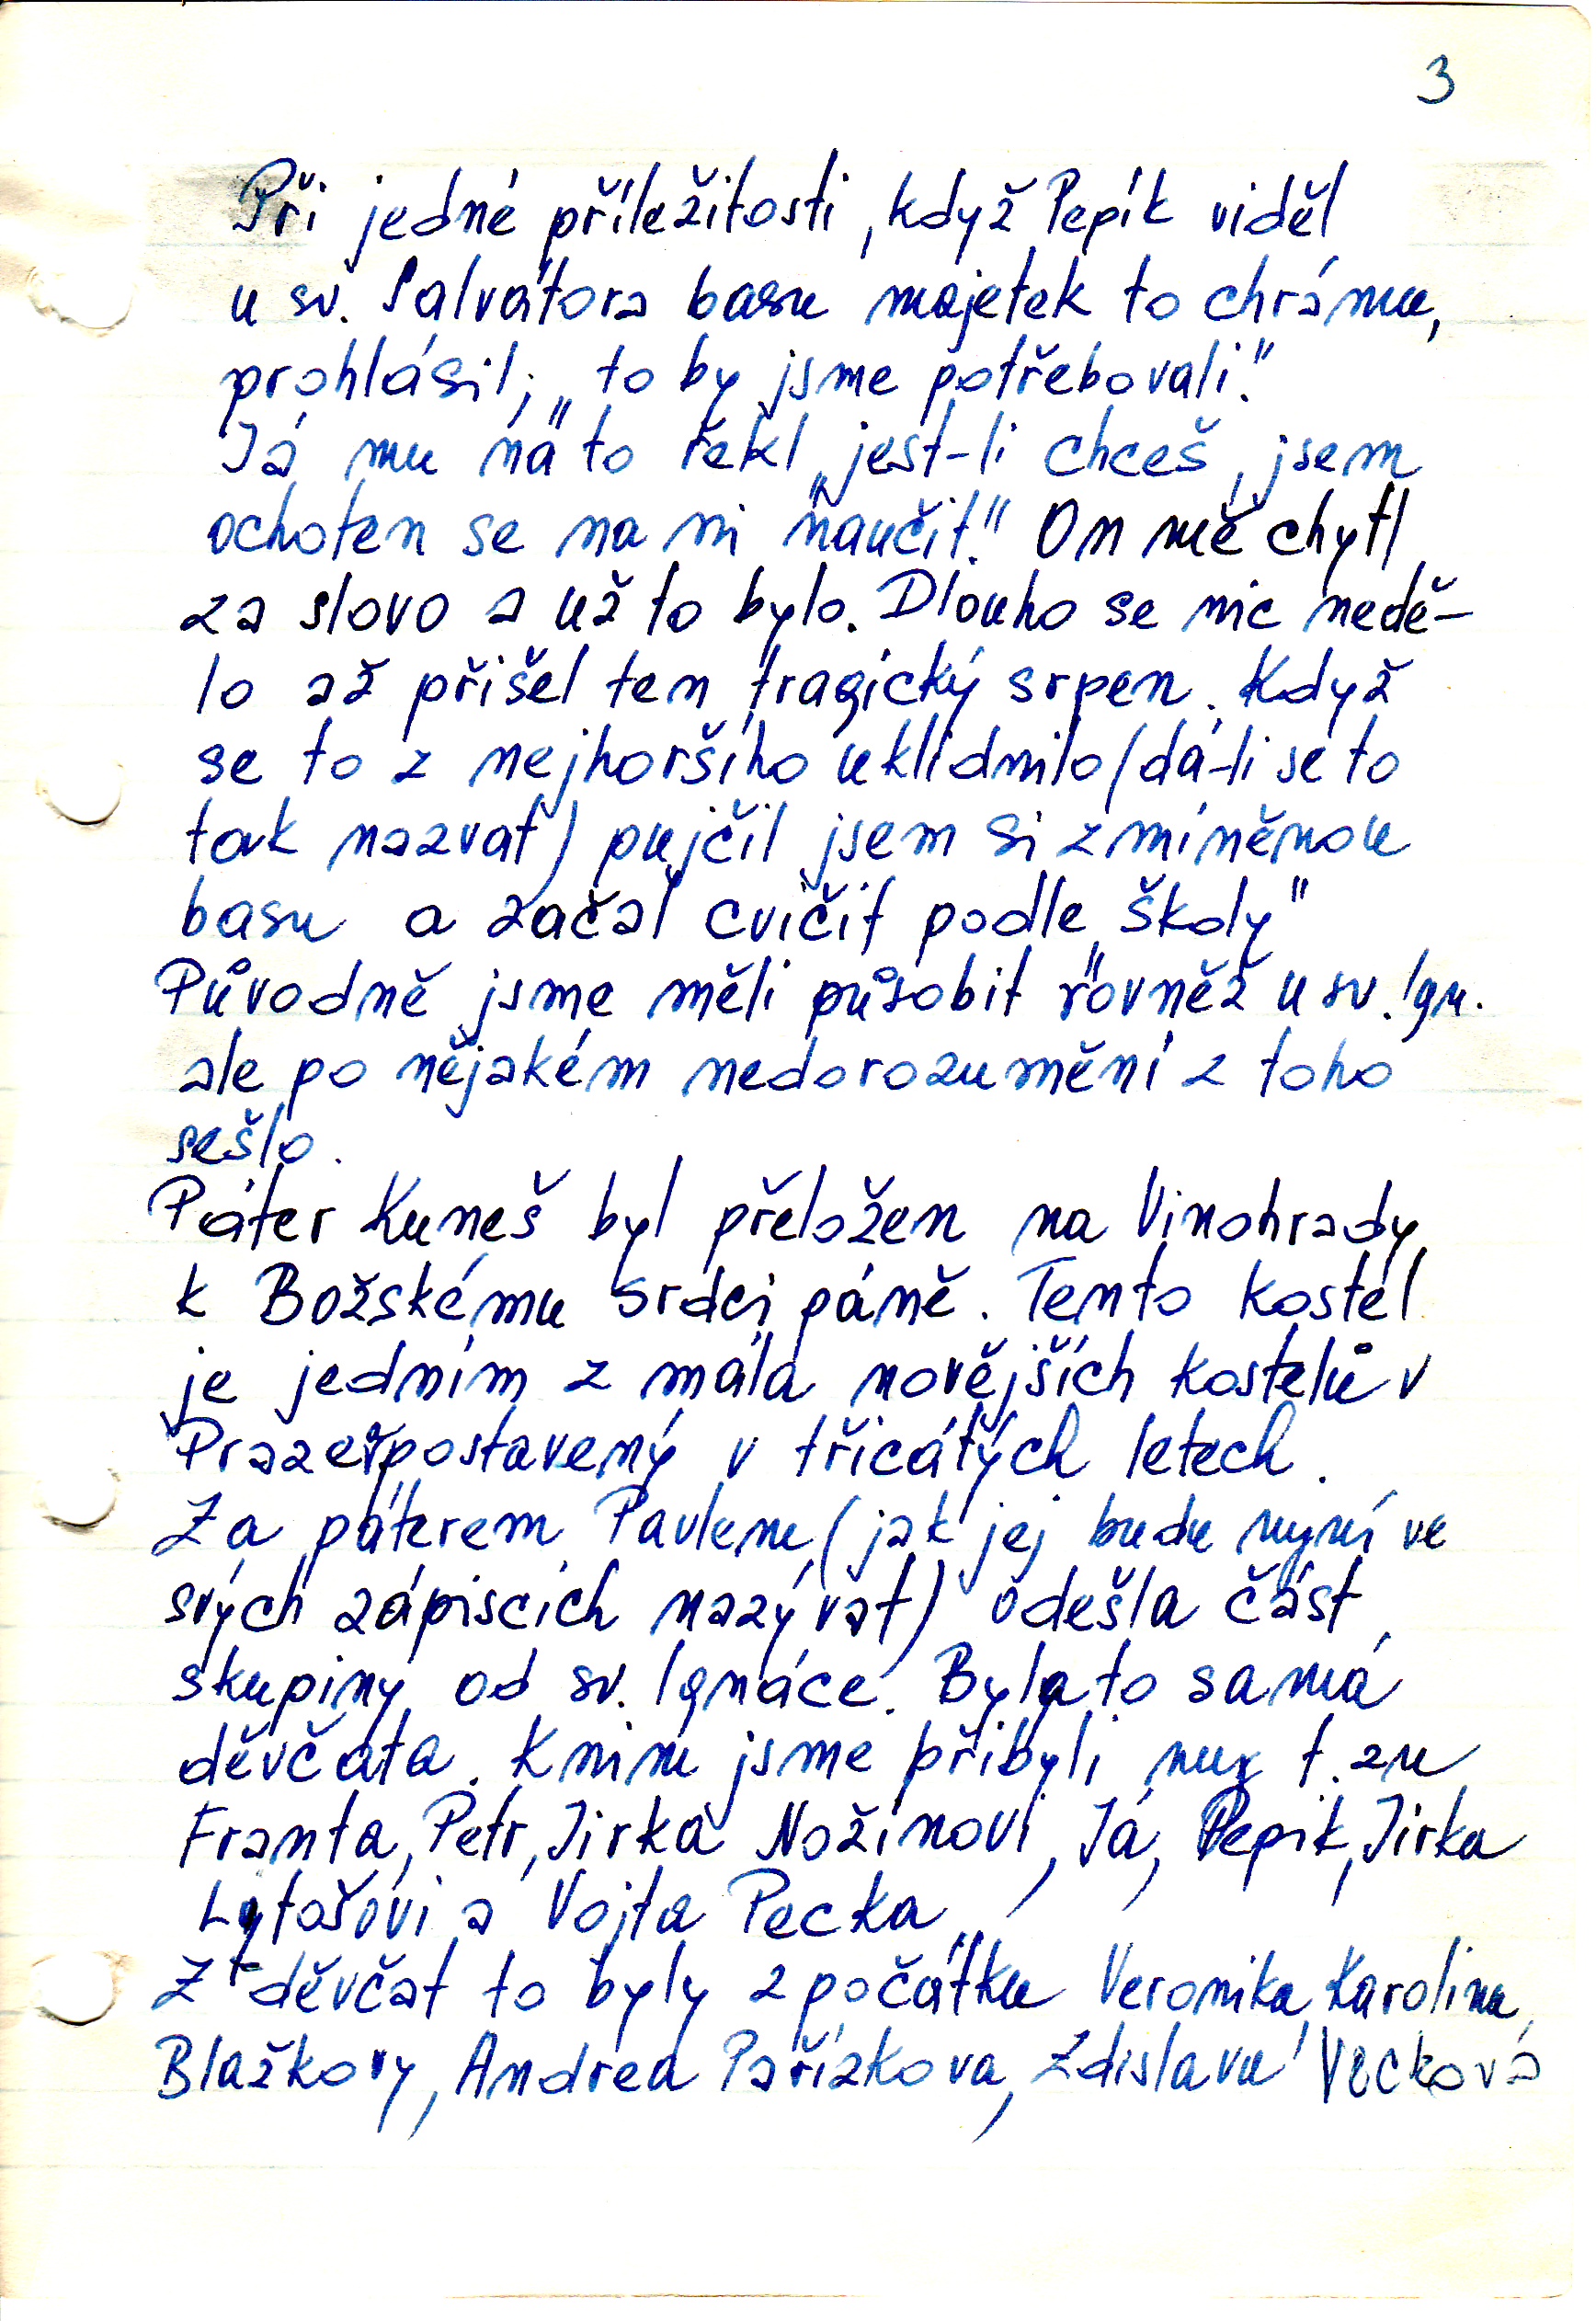 3
Při jedné příležitosti, když Pepík viděl
u sv. Salvátora basu majetek to chrámu,
prohlásil; „to by jsme potřebovali."
Já mu na to řekl „jest-li chceš, jsem
ochoten se na ni naučit." On mě chytl
za slovo a už to bylo. Dlouho se nic nedě-
lo až přišel ten tragický srpen. Když
se to z nejhoršího uklidnilo (dá-li se to
tak nazvat) pujčil jsem si zmíněnou
basu a začal cvičit podle „školy"
Původně jsme měli působit rovněž u sv. Ign.
ale po nějakém nedorozumění z toho
sešlo.
Páter Kuneš byl přeložen na Vinohrady
k Božskému srdci páně. Tento kostel
je jedním z mála novějších kostelů v
Praze postavený v třicátých letech.
Za páterem Pavlem (jak jej budu nyní ve
svých zápiscích nazývat) odešla část
skupiny od sv. Ignáce. Byla to samá
děvčata. K nim jsme přibyli my t. zn
Franta, Petr, Jirka Nožinovi, Já, Pepík, Jirka
Lytošovi a Vojta Pecka
Z děvčat to byly zpočátku Veronika, Karolina
Blažkovy, Andrea Pařízkova, Zdislava Vecková